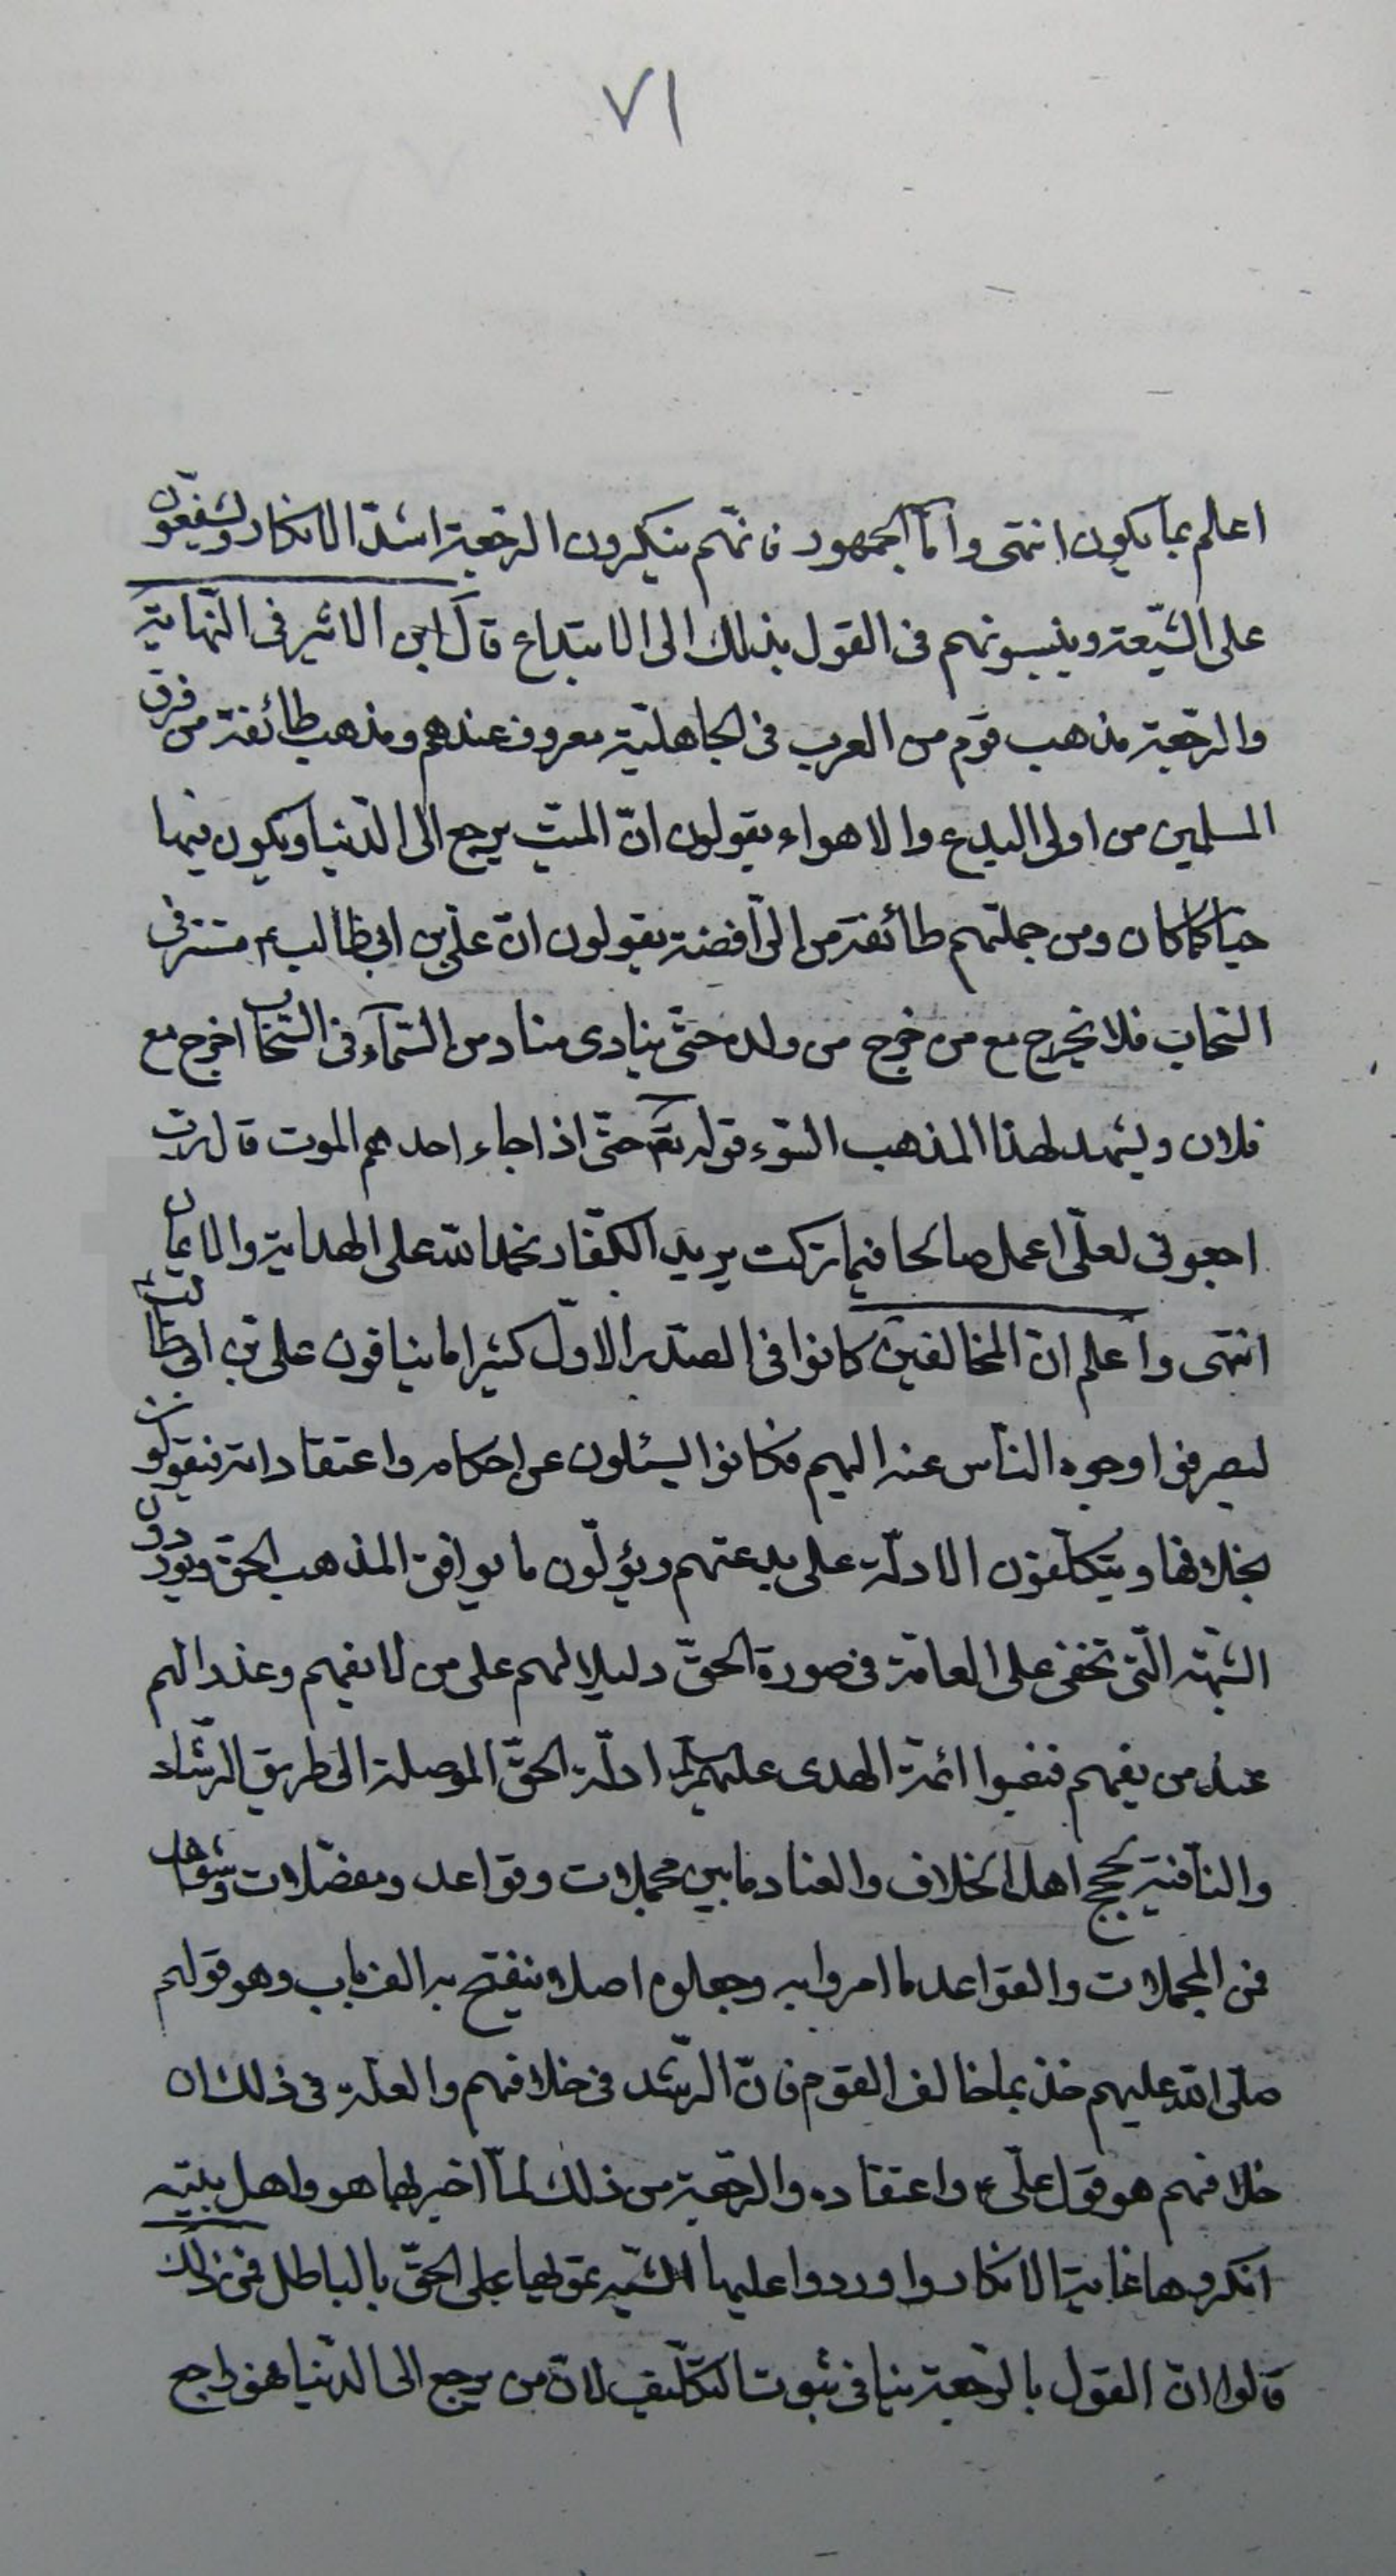 ٧١
اعلم بما يكون انتهى وامّا الجمهور فانّهم ينكرون الرّجعة اشدّ الانكار ويشنّعون
على الشّيعة وينسبونهم فى القول بذلك الى الابتداع قال ابن الاثير فى النّهاية
والرّجعة مذهب قوم من العرب فى الجاهليّة معروف عندهم ومذهب طائفة من فرق
المسلمين من اولى البدع والاهواء يقولون انّ الميّت يرجع الى الدّنيا ويكون فيها
حيّا كما كان ومن جملتهم طائفة من الرّافضة يقولون انّ علىّ بن ابى طالب ع مستتر فى
السّحاب فلا يخرج مع من خرج من ولده حتّى ينادى مناد من السّمآء فى السّحاب اخرج مع
فلان ويشهد لهذا المذهب السّوء قوله تعٓ حتّى اذا جاء احدهم الموت قال ربّ
ارجعونى لعلّى اعمل صالحا فيما تركت يريد الكفّار نحمد الله على الهداية والايمان
انتهى واعلم ان المخالفين كانوا فى الصّدر الاوّل كثيرا ما ينافون على بن ابى طالب ع
ليصرفوا وجوه النّاس عنه اليهم فكانوا يسئلون عن احكامه واعتقاداته فيقولون
بخلافها ويتكلّفون الادلّة على بدعتهم ويؤلّون ما يوافق المذهب الحقّ ويوردون
الشّبهة الّتى تخفى على العامّة فى صورة الحقّ دليلا لهم على من لا يفهم وعذرا لهم
عند من يفهم فنصبوا ائمّة الهدى عليهم السلم ادلّة الحقّ الموصلة الى طريق الرّشاد
والنّافية لحجج اهل الخلاف والعناد ما بين مجملات وقواعد ومفصّلات وشواهد
فمن المجملات والقواعد ما امروا به وجعلوه اصلا ينفتح به الف باب وهو قولهم
صلّى الله عليهم خذ بما خالف القوم فانّ الرّشد فى خلافهم والعلّة فى ذلك ان
خلافهم هو قول علىّ ع واعتقاده والرّجعة من ذلك لمّا اخبر بها هو واهل بيته
انكروها غاية الانكار واوردوا عليها الشّبه تمويها على الحقّ بالباطل فمن ذلك
قالوا انّ القول بالرّجعة ينافى ثبوت التكليف لانّ من يرجع الى الدّنيا فهو راجع